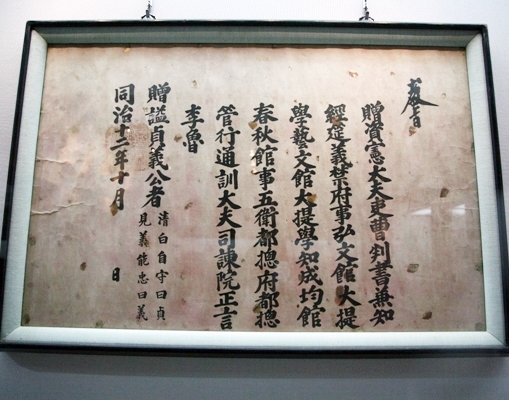 敎旨
贈資憲大夫吏曹判書兼知
經筵義禁府事弘文館大提
學藝文館大提學知成均館
春秋館事五衛都摠府都摠
管行通訓大夫司諫院正言
李魯
贈諡貞義公者
清白自守曰貞
見義能忠曰義
同治十二年十月 日